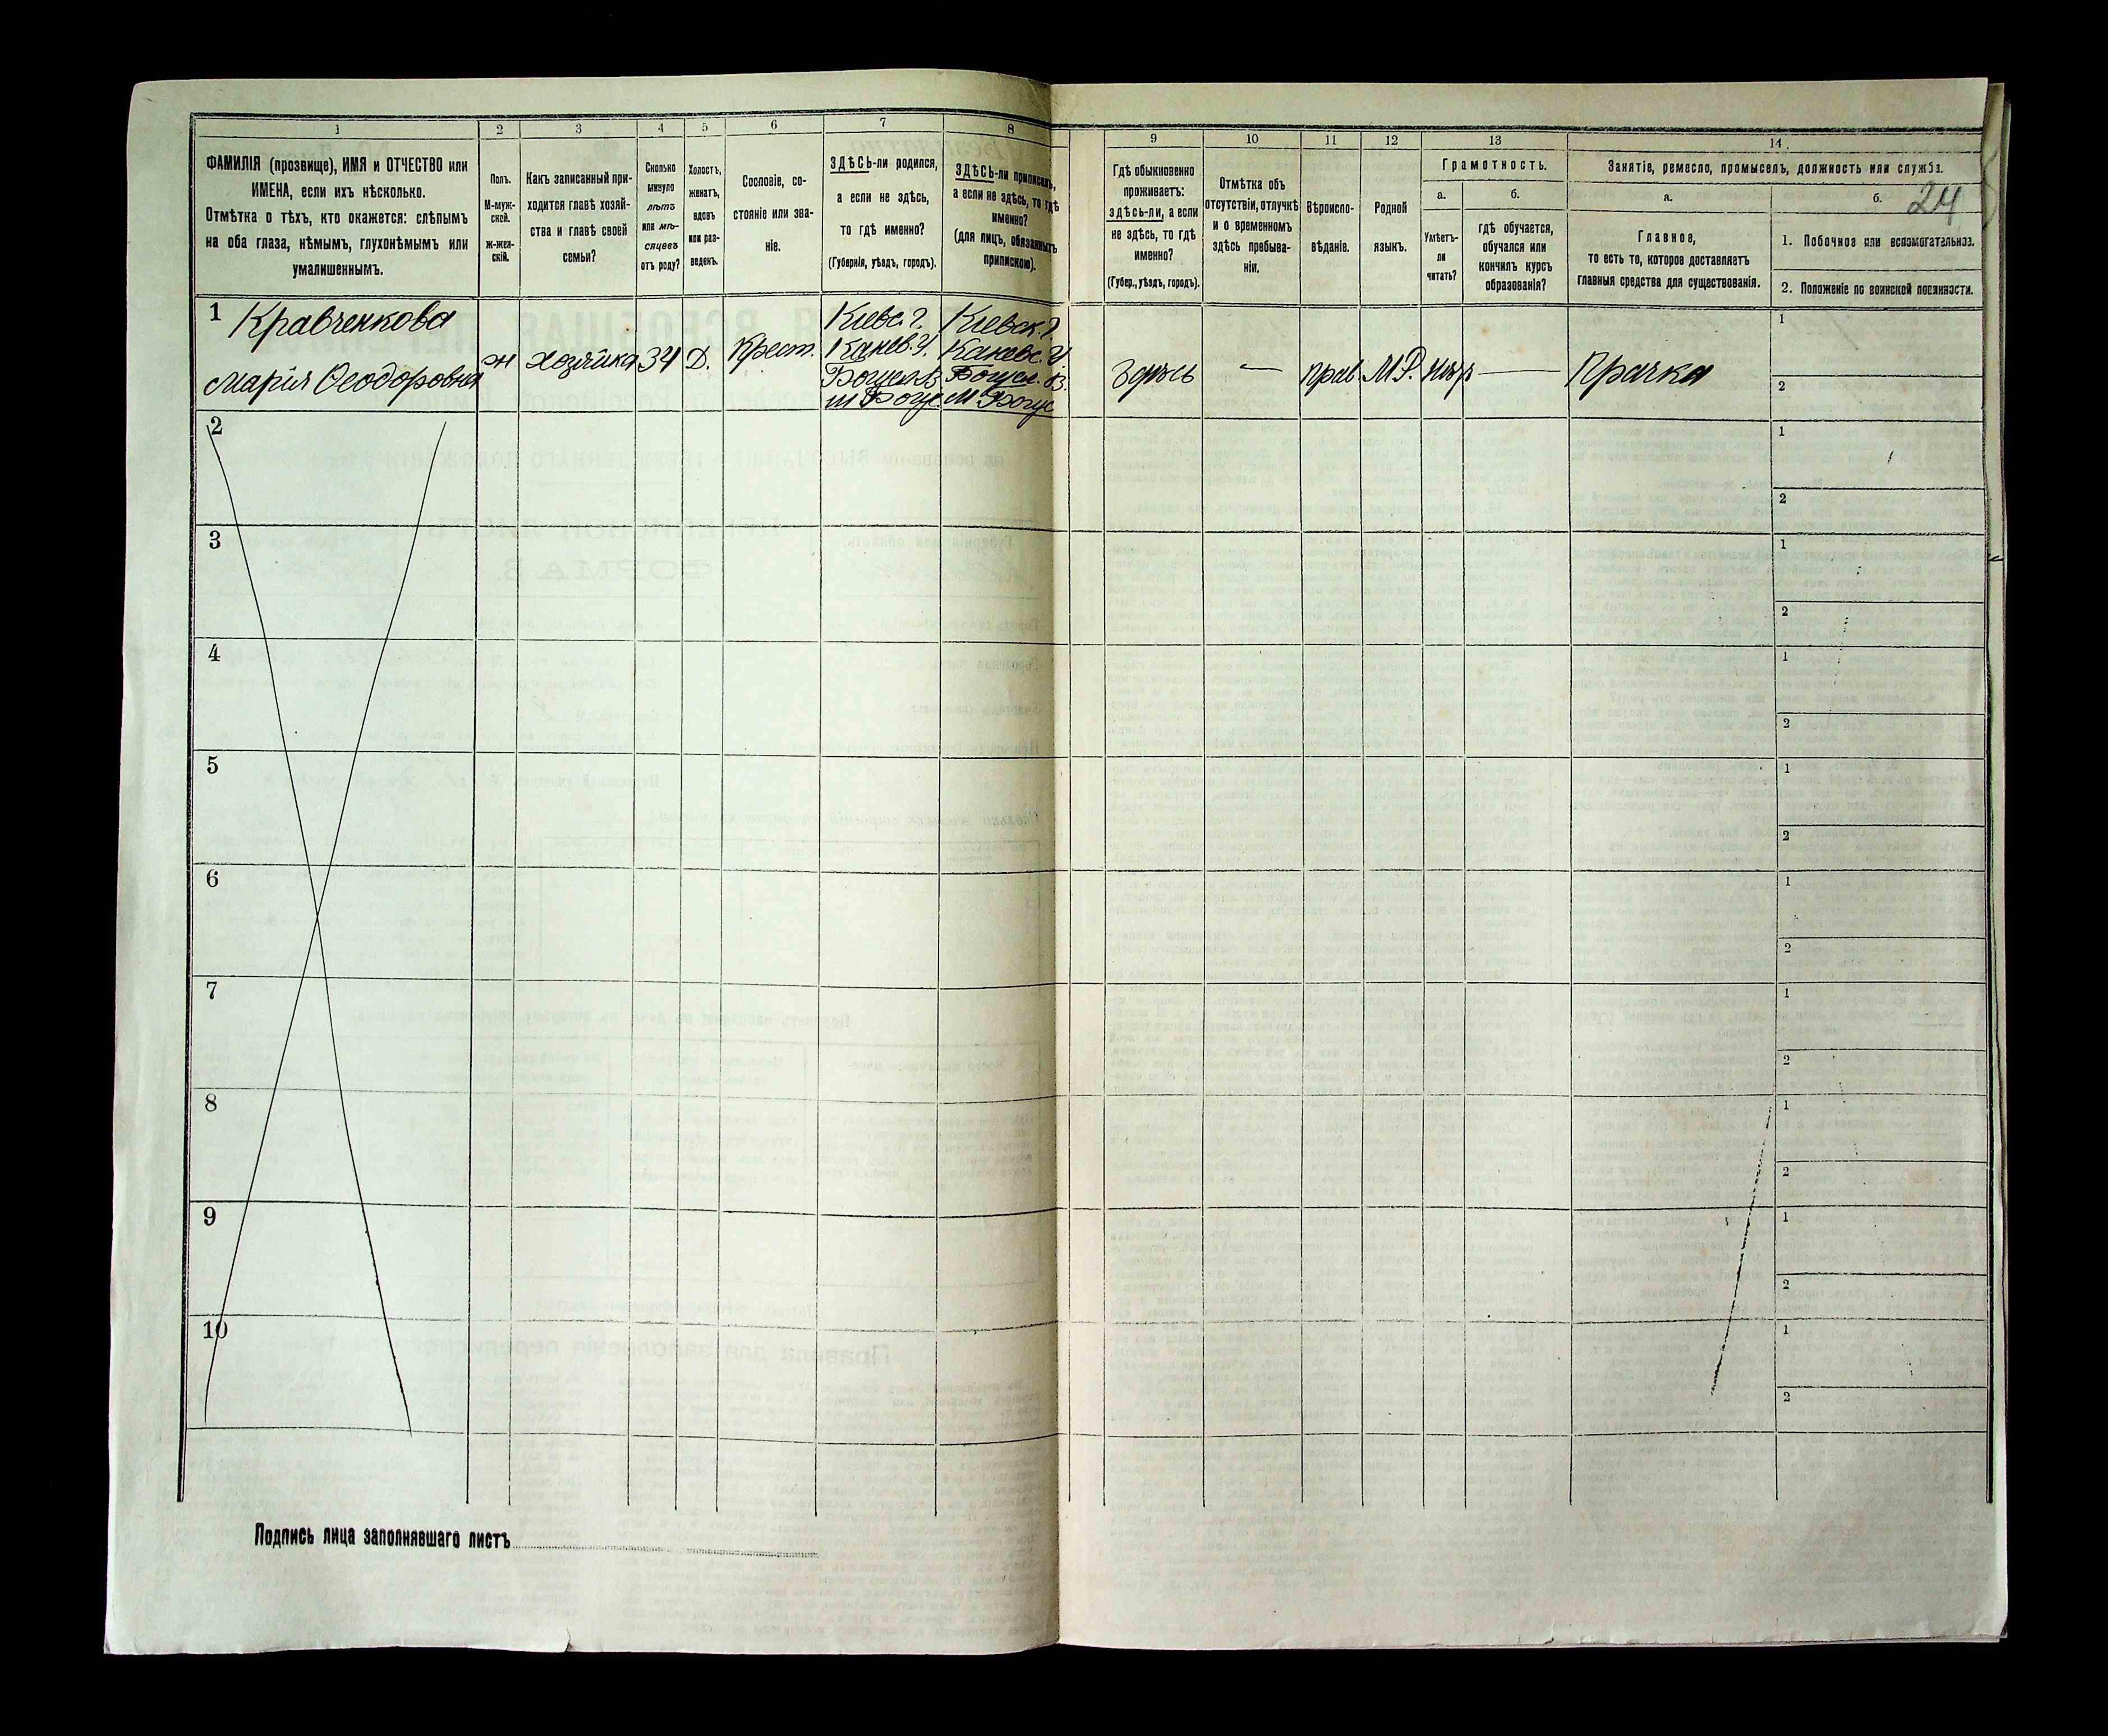 1 2 3 4 5 6 7 8 9 10 11 12 13 14
ФАМИЛІЯ (прозвище), ИМЯ и ОТЧЕСТВО или
ИМЕНА, если ихъ нѣсколько.
Отмѣтка о тѣхъ, кто окажется: слѣпымъ
на оба глаза, нѣмымъ, глухонѣмымъ или
умалишеннымъ.
Полъ.
М-муж-
ской.
ж-жен-
скій.
Какъ записанный при-
ходится главѣ хозяй-
ства и главѣ своей
семьи?
Сколько
минуло
лѣтъ
или мѣ-
сяцевъ
отъ роду?
Холостъ,
женатъ,
вдовъ
или раз-
веденъ.
Сословіе, со-
стояніе или зва-
ніе.
ЗДѢСЬ-ли родился,
а если не здѣсь,
то гдѣ именно?
(Губернія, уѣздъ, городъ).
ЗДѢСЬ-ли приписанъ,
а если не здѣсь, то гдѣ
именно?
(для лицъ, обязанныхъ
припискою).
Гдѣ обыкновенно
проживаетъ:
здѣсь-ли, а если
не здѣсь, то гдѣ
именно?
(Губер., уѣздъ, городъ).
Отмѣтка объ
отсутствіи, отлучкѣ
и о временномъ
здѣсь пребыва-
ніи.
Вѣроиспо-
вѣданіе.
Родной
языкъ.
Грамотность.
а.
Умѣетъ-
ли
читать?
б.
гдѣ обучается,
обучался или
кончилъ курсъ
образованія?
Занятіе, ремесло, промыселъ, должность или служба.
а.
Главное,
то есть то, которое доставляетъ
главныя средства для существованія.
б.
24
1. Побочное или вспомогательное.
2. Положеніе по воинской повинности.
1 Кравченкова
Марія Ѳеодоровна
ж
хозяйка
34
Д.
Крест.
Кіевс. г.
Канев. У.
Богусл. В
м Богус.
Кіевск. г.
Каневс. У
Богусл. В.
м. Богус
Здѣсь
—
прав.
М.Р.
нѣтъ
—
Прачка
1
2
2
1
2
3
1
2
4
1
2
5
1
2
6
1
2
7
1
2
8
1
2
9
1
2
10
1
2
Подпись лица заполнявшаго листъ